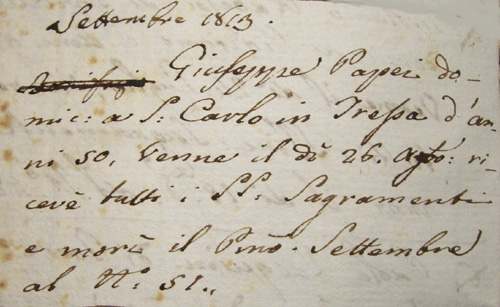 Settembre 1813.
Giuseppe Papei do-
mic: a S: Carlo in Tressa d'an-
ni 50, venne il dì 26. Agto: ri-
cevè tutti i SS. Sagramenti
e morì il Pmo. Settembre
al N°. 51..